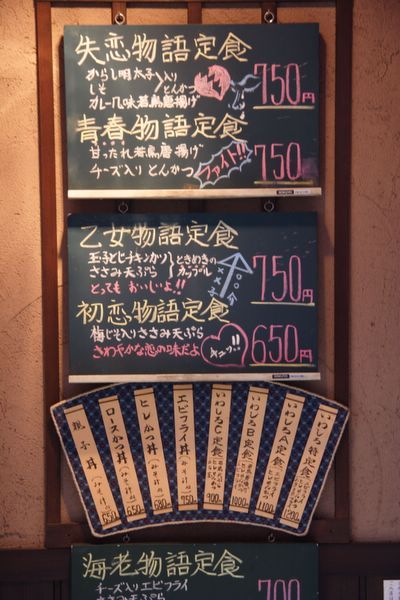 失恋物語定食
からし明太子入り
しそ
とんかつ
カレー風味若鳥唐揚げ
750円
青春物語定食
甘ったれ若鳥唐揚げ
チーズ入りとんかつ
ファイト!!
750
乙女物語定食
玉子とじチキンカツ
ささみ天ぷら
ときめきの
カップール
とっても おいしいよ!!
750円
初恋物語定食
梅じそ入りささみ天ぷら
さわやかな恋の味だよ
キュッ!!
650円
いわしろ特定食
1200
いわしろA定食
1100
いわしろB定食
1000
いわしろC定食
900
エビフライ丼(みそ汁付)
750
ヒレかつ丼(みそ汁付)
680
ロースかつ丼(みそ汁付)
650
親子丼(みそ汁付)
650
海老物語定食
チーズ入りエビフライ
ささみ天ぷら
700